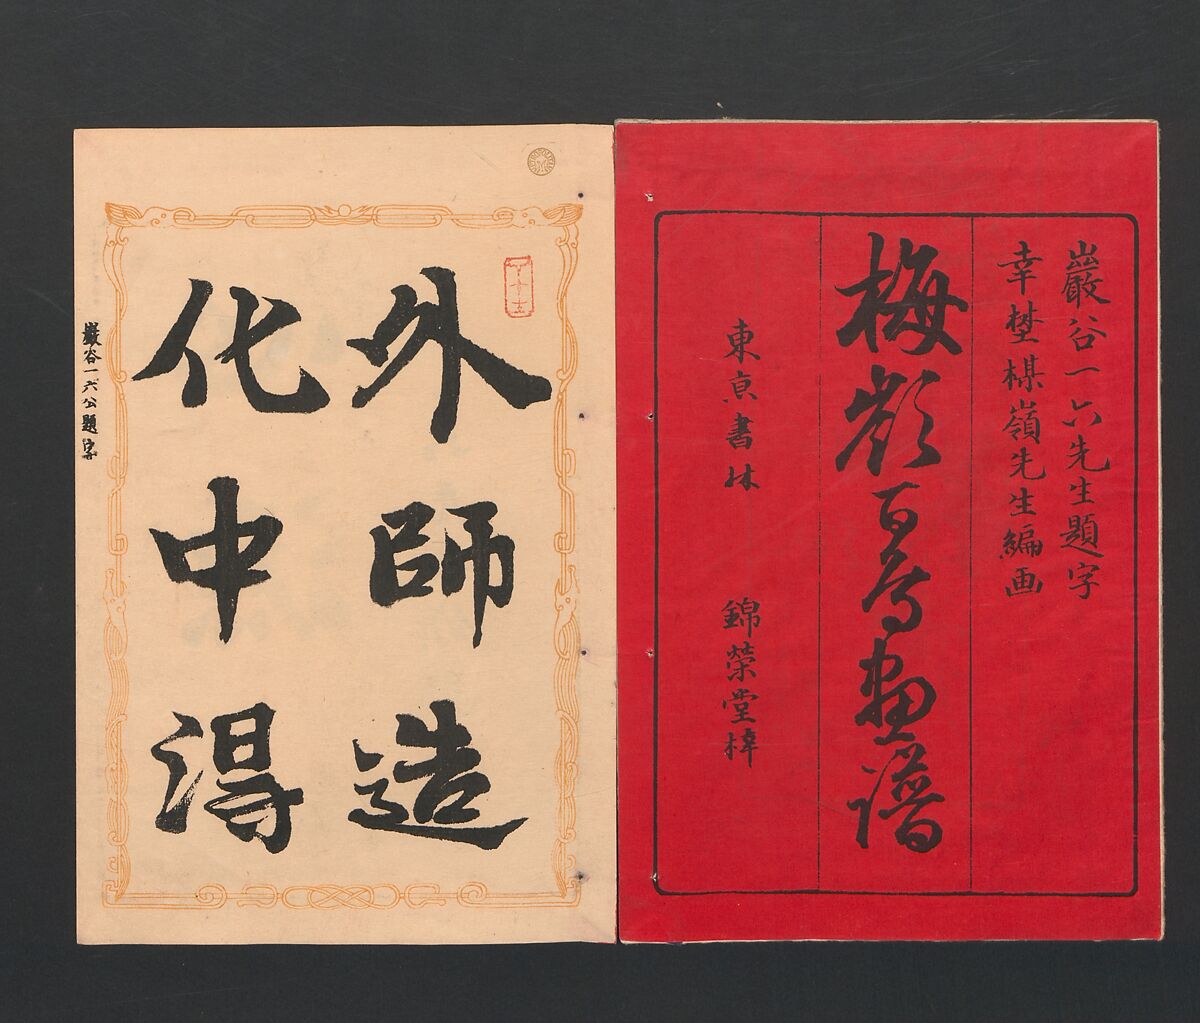 巖谷一六先生題字
幸埜楳嶺先生編画
梅嶺百鳥畫譜
東亰書林 錦榮堂梓
外師造
化中得
巖谷一六公題字